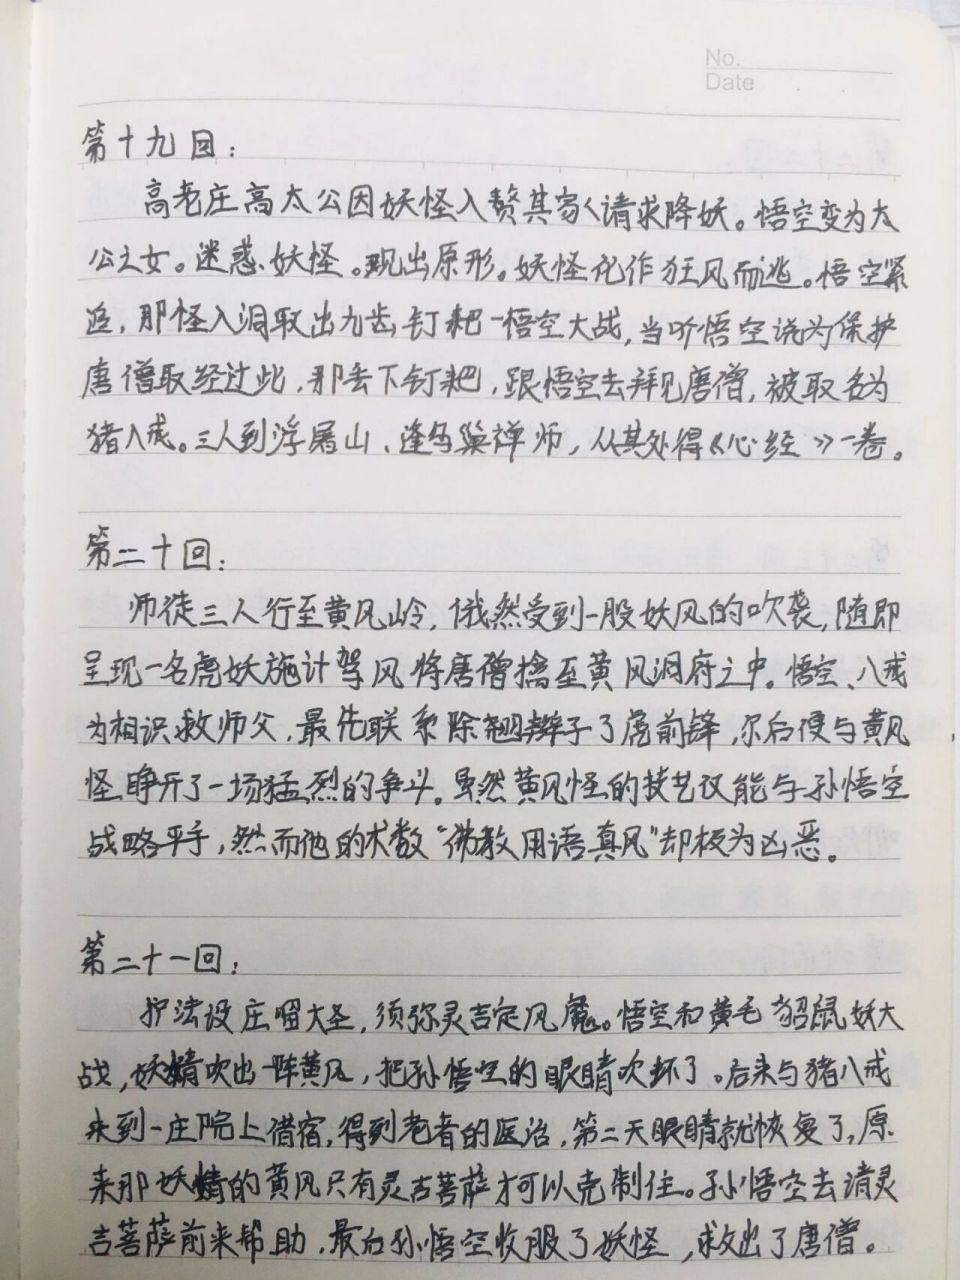 No.
Date
第十九回：
高老庄高太公因妖怪入赘其家，请求降妖。悟空变为太
公之女。迷惑妖怪。现出原形。妖怪化作狂风而逃。悟空紧
追，那怪入洞取出九齿钉耙一悟空大战，当听悟空说为保护
唐僧取经过此，那丢下钉耙，跟悟空去拜见唐僧，被取名为
猪八戒。三人到浮屠山、逢乌巢禅师，从其处得《心经》一卷。
第二十回：
师徒三人行至黄风岭，俄然受到一股妖风的吹袭，随即
呈现一名虎妖施计驾风将唐僧擒至黄风洞府之中。悟空、八戒
为相识救师父，最先联系除翘辫子了虎前锋，尔后便与黄风
怪睁开了一场猛烈的争斗。虽然黄风怪的技艺仅能与孙悟空
战略平手，然而他的术数“佛教用语真风”却极为凶恶。
第二十一回：
护法设庄留大圣，须弥灵吉定风魔。悟空和黄毛貂鼠妖大
战，妖精吹出一阵黄风，把孙悟空的眼睛吹坏了。后来与猪八戒
来到一庄院上借宿，得到老者的医治，第二天眼睛就恢复了，原
来那妖精的黄风只有灵吉菩萨才可以克制住。孙悟空去请灵
吉菩萨前来帮助，最后孙悟空收服了妖怪，救出了唐僧。